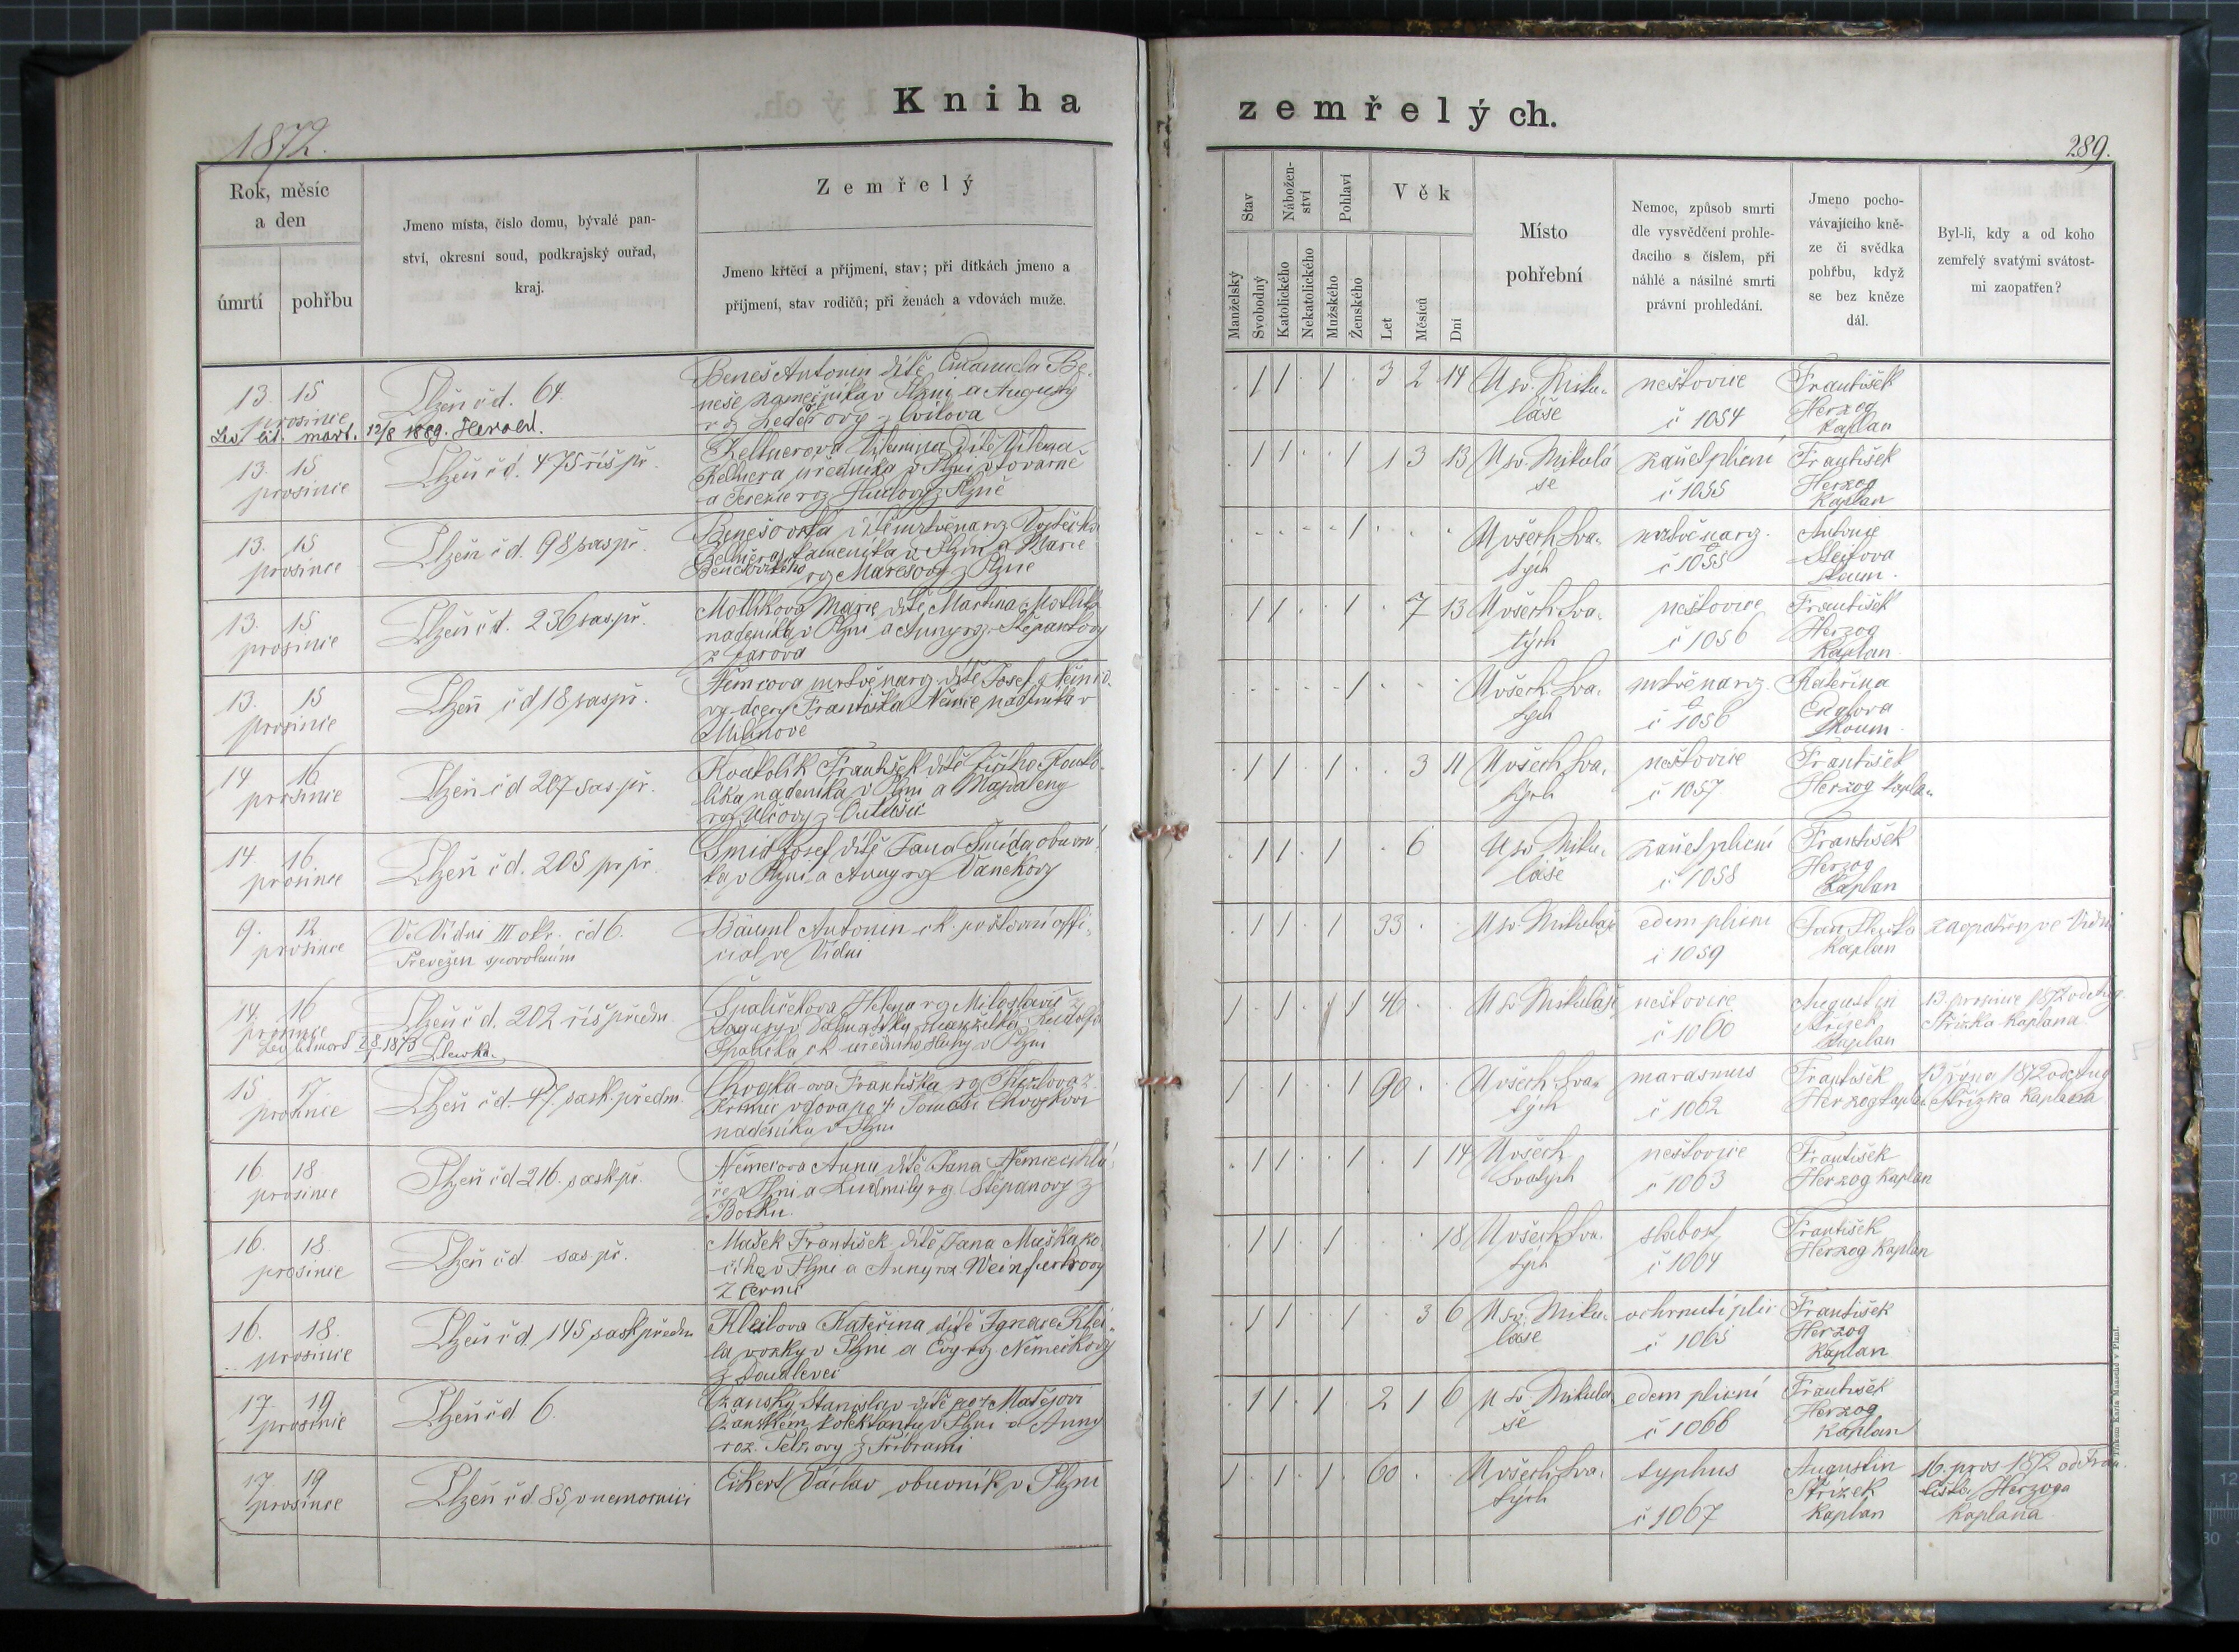 Kniha
zemřelých.
1872.
289.
Rok, měsíc
a den
úmrtí
pohřbu
Jmeno místa, číslo domu, bývalé pan-
ství, okresní soud, podkrajský ouřad,
kraj.
Zemřelý
Jmeno křtěcí a příjmení, stav; při dítkách jmeno a
příjmení, stav rodičů; při ženách a vdovách muže.
Stav
Manželský
Svobodný
Nábožen-
ství
Katolického
Nekatolického
Pohlaví
Mužského
Ženského
Věk
Let
Měsíců
Dní
Místo
pohřební
Nemoc, způsob smrti
dle vysvědčení prohle-
dacího s číslem, při
náhlé a násilné smrti
právní prohledání.
Jmeno pocho-
vávajícího kně-
ze či svědka
pohřbu, když
se bez kněze
dál.
Byl-li, kdy a od koho
zemřelý svatými svátost-
mi zaopatřen?
13. 15
prosince
Plzeň čd. 64.
Beneš Antonin dítě Emanuela Be-
neše v Plzni a Augusty
rz
1 1 1 3 2 14
U sv. Miku-
láše
neštovice
č 1054
František
Herzog
Kaplan
lit. mort. 12/8 1889. Herold.
13. 15
prosince
Plzeň čd. 475 říš př.
Keltnerova Vilemina dítě Vilema
Keltnera úředníka v Plzni v továrně
a Terezie rz z Plzně
1 1 1 1 3 13
U sv. Mikulá
še
zánět plicní
č 1055
František
Herzog
Kaplan
13. 15
prosince
Plzeň čd. 98 sas př.
dítě mrtvě narz Vojtěcha
kameníka v Plzni a Marie
rz Marešovy z Plzně
1
U všech Sva-
tých
mrtvě narz.
č 1055
Antonie
13. 15
prosince
Plzeň čd. 236 sas. př.
Motlikova Marie dítě Martina Motlika
nadeníka v Plzni a Anny rz. Štěpankovy
z
1 1 1 7 13
U všech Sva-
tých
neštovice
č 1056
František
Herzog
Kaplan
13. 15
prosince
Plzeň čd 18 sas př.
Němcova mrtvě narz. dítě Josefy Němco-
vy dcery Františka Němce nadeníka v
1
U všech Sva-
tých
mrtvě narz.
č 1056
Kateřina
14 16
prosince
Plzeň čd 207 sas př.
František dítě Jiřího
nadeníka v Plzni a Magdaleny
rz
1 1 1 3 11
U všech Sva-
tých
neštovice
č 1057
František
Herzog Kaplan
14. 16.
prosince
Plzeň čd. 205 pr př.
Šmid Josef dítě Jana Šmida obuvní-
ka v Plzni a Anny rz Vaněkovy
1 1 1 6
U sv. Miku-
láše
zánět plicní
č 1058
František
Herzog
Kaplan
9. 12
prosince
Ve Vídni III okr. čd 6.
Převežen s povolením
Bäuml Antonin ck. poštovní offi-
cial ve Vídni
1 1 1 33
U sv. Mikuláše
edem plicní
č 1059
Jan
Kaplan
zaopatřen ve Vídni
14. 16
prosince
Plzeň čd. 202 říš předm.
Špaličekova Helena rz
manželka
v Plzni
1 1 1 46
U sv. Mikuláše
neštovice
č 1060
Augustin
Střízek
Kaplan
13. prosince 1872 od Aug
Střízka Kaplana
1873
15 17
prosince
Plzeň čd. 47 sask. předm.
Františka rz
vdova po † Tomáši
nadeníku v Plzni
1 1 1 90
U všech Sva-
tých
marasmus
č 1062
František
Herzog Kaplan
13 října 1872 od Aug
Střízka Kaplana
16. 18
prosince
Plzeň čd 216. sask. př.
Němcova Anna dítě Jana Němce cihlá-
ře v Plzni a Ludmily rz Štěpanovy z
Borku.
1 1 1 1 14
U všech
Svatých
neštovice
č 1063
František
Herzog Kaplan
16. 18
prosince
Plzeň čd sas. př.
Mašek František dítě Jana Maška ko-
čího v Plzni a Anny roz. Weinfurtrovy
z Černic
1 1 1 18
U všech Sva-
tých
slabost
č 1064
František
Herzog Kaplan
16. 18.
prosince
Plzeň čd. 145 sask předm
Kleilova Kateřina dítě Ignace Klei-
la vozky v Plzni a Evy rz. Němečkovy
z Doudlevec
1 1 1 3 6
U sv. Miku-
láše
ochrnutí plic
č 1065
František
Herzog
Kaplan
17. 19
prosince
Plzeň čd 6.
Stanislav dítě po † Matějovi
v Plzni a Anny
roz. z Příbrami
1 1 1 2 1 6
U sv. Mikulá
še
edem plicní
č 1066
František
Herzog
Kaplan
17 19
prosince
Plzeň čd. 85 v nemocnici
Eckert Václav obuvník v Plzni
1 1 1 60
U všech Sva-
tých
typhus
č 1067
Augustin
Střízek
Kaplan
16. pros 1872 od Fran-
tiška Herzoga
Kaplana
Tiskem Karla Maascha v Plzni.